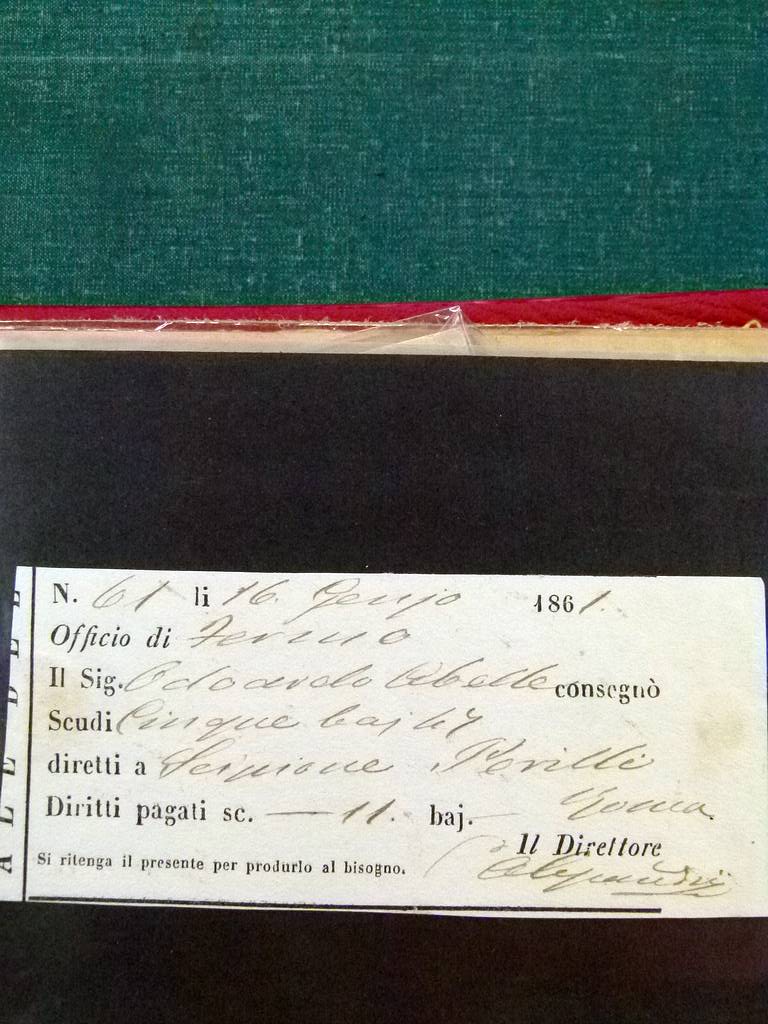 N. 61 li 16. Genjo 1861.
Officio di Fermo
Il Sig. Odoardo Abelle consegnò
Scudi Cinque baj 64
diretti a Scipione Perilli
Roma
Diritti pagati sc. — 11. baj.
Il Direttore
Si ritenga il presente per produrlo al bisogno.